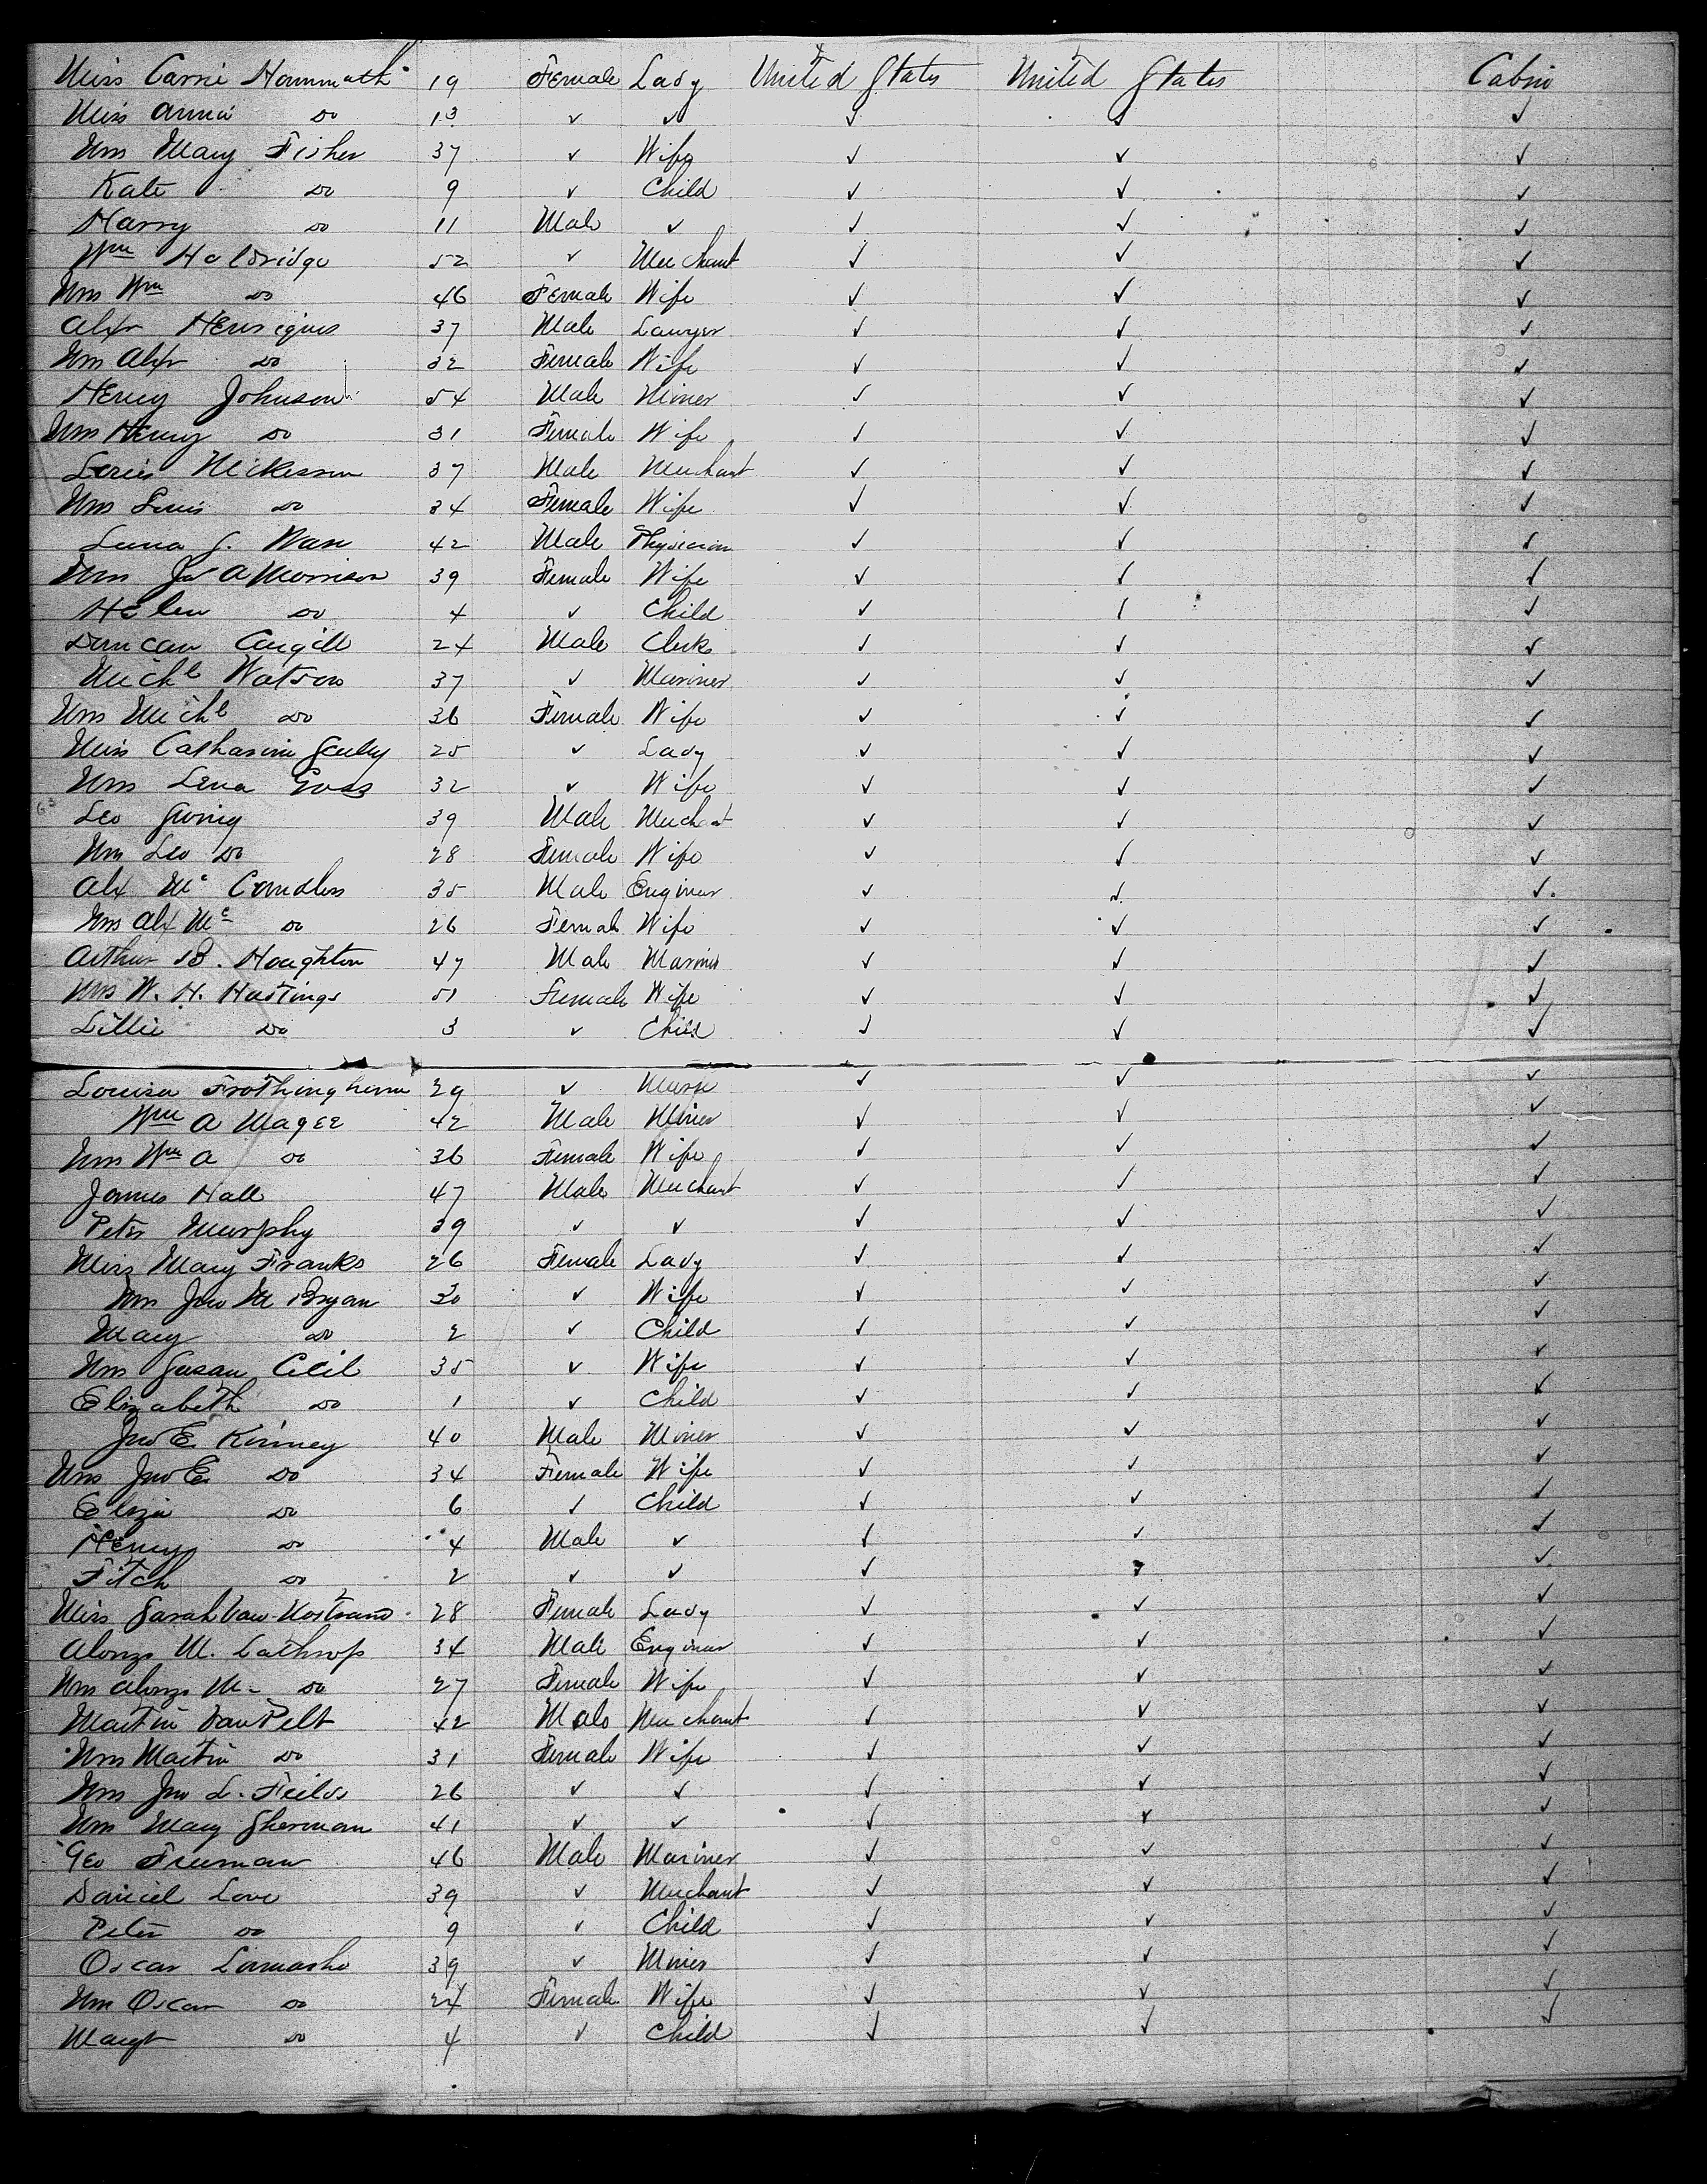 Miss Carrie Hammath 19 Female Lady United States United States Cabin
Miss Anna do 13 ✓ ✓ ✓ ✓ ✓
Mrs Mary Fisher 37 ✓ Wife ✓ ✓ ✓
Kate do 9 ✓ Child ✓ ✓ ✓
Harry do 11 Male ✓ ✓ ✓ ✓
Wm Holdridge 52 ✓ Merchant ✓ ✓ ✓
Mrs Wm do 46 Female Wife ✓ ✓ ✓
Alexr Henriques 37 Male Lawyer ✓ ✓ ✓
Mrs Alexr do 32 Female Wife ✓ ✓ ✓
Henry Johnson 54 Male Miner ✓ ✓ ✓
Mrs Henry do 31 Female Wife ✓ ✓ ✓
Lewis Mikesson 37 Male Merchant ✓ ✓ ✓
Mrs Lewis do 34 Female Wife ✓ ✓ ✓
J. Ware 42 Male Physician ✓ ✓ ✓
Mrs Jno A Morrison 39 Female Wife ✓ ✓ ✓
Helen do 4 ✓ Child ✓ ✓ ✓
Duncan Cargill 24 Male Clerk ✓ ✓ ✓
Michl Watson 37 ✓ Mariner ✓ ✓ ✓
Mrs Michl do 36 Female Wife ✓ ✓ ✓
Miss Catharine 25 ✓ Lady ✓ ✓ ✓
Mrs Lena Goss 32 ✓ Wife ✓ ✓ ✓
Leo 39 Male Merchant ✓ ✓ ✓
Mrs Leo do 28 Female Wife ✓ ✓ ✓
Alex Mc Candless 35 Male Engineer ✓ ✓ ✓
Mrs Alex Mc do 26 Female Wife ✓ ✓ ✓
Arthur B. Houghton 47 Male Mariner ✓ ✓ ✓
Mrs W. H. Hastings 51 Female Wife ✓ ✓ ✓
Lillie do 3 ✓ Child ✓ ✓ ✓
Louisa Frothingham 29 ✓ Nurse ✓ ✓ ✓
Wm A Magee 42 Male Miner ✓ ✓ ✓
Mrs Wm A do 36 Female Wife ✓ ✓ ✓
James Hall 47 Male Merchant ✓ ✓ ✓
Peter Murphy 39 ✓ ✓ ✓ ✓ ✓
Miss Mary Franks 26 Female Lady ✓ ✓ ✓
Mrs Jno M Bryan 30 ✓ Wife ✓ ✓ ✓
Mary do 2 ✓ Child ✓ ✓ ✓
Mrs Susan Cecil 35 ✓ Wife ✓ ✓ ✓
Elizabeth do 1 ✓ Child ✓ ✓ ✓
Jno E. Kinney 40 Male Miner ✓ ✓ ✓
Mrs Jno E. do 34 Female Wife ✓ ✓ ✓
Eliza do 6 ✓ Child ✓ ✓ ✓
Henry do 4 Male ✓ ✓ ✓ ✓
Fitch do 2 ✓ ✓ ✓ ✓ ✓
Miss Sarah Van-Nostrand 28 Female Lady ✓ ✓ ✓
Alonzo M. Lathrop 34 Male Engineer ✓ ✓ ✓
Mrs Alonzo M. do 27 Female Wife ✓ ✓ ✓
Martin Van Pelt 42 Male Merchant ✓ ✓ ✓
Mrs Martin do 31 Female Wife ✓ ✓ ✓
Mrs Jno L. Fields 26 ✓ ✓ ✓ ✓ ✓
Mrs Mary Sherman 41 ✓ ✓ ✓ ✓ ✓
Geo Freeman 46 Male Mariner ✓ ✓ ✓
Daniel Love 39 ✓ Merchant ✓ ✓ ✓
Peter do 9 ✓ Child ✓ ✓ ✓
Oscar Lamashe 39 ✓ Miner ✓ ✓ ✓
Mrs Oscar do 24 Female Wife ✓ ✓ ✓
Margt do 4 ✓ Child ✓ ✓ ✓